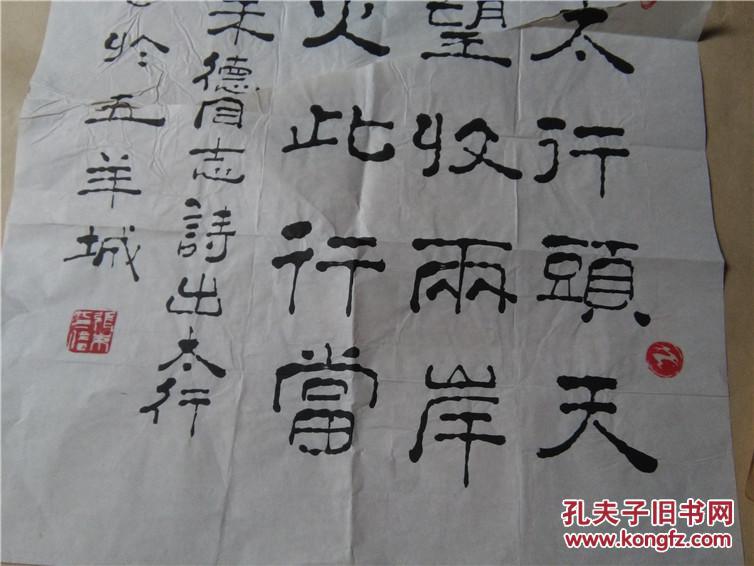 太行頭天
望收兩岸
火此行當
朱德同志詩出太行
於五羊城
孔夫子旧书网
www.kongfz.com